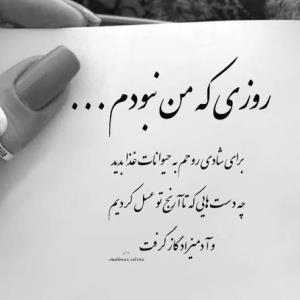 روزی که من نبودم ...
برای شادی روحم به حیوانات غذا بدید
چه دست هایی که تا آرنج تو عسل کردیم
و آدمیزاد گاز گرفت